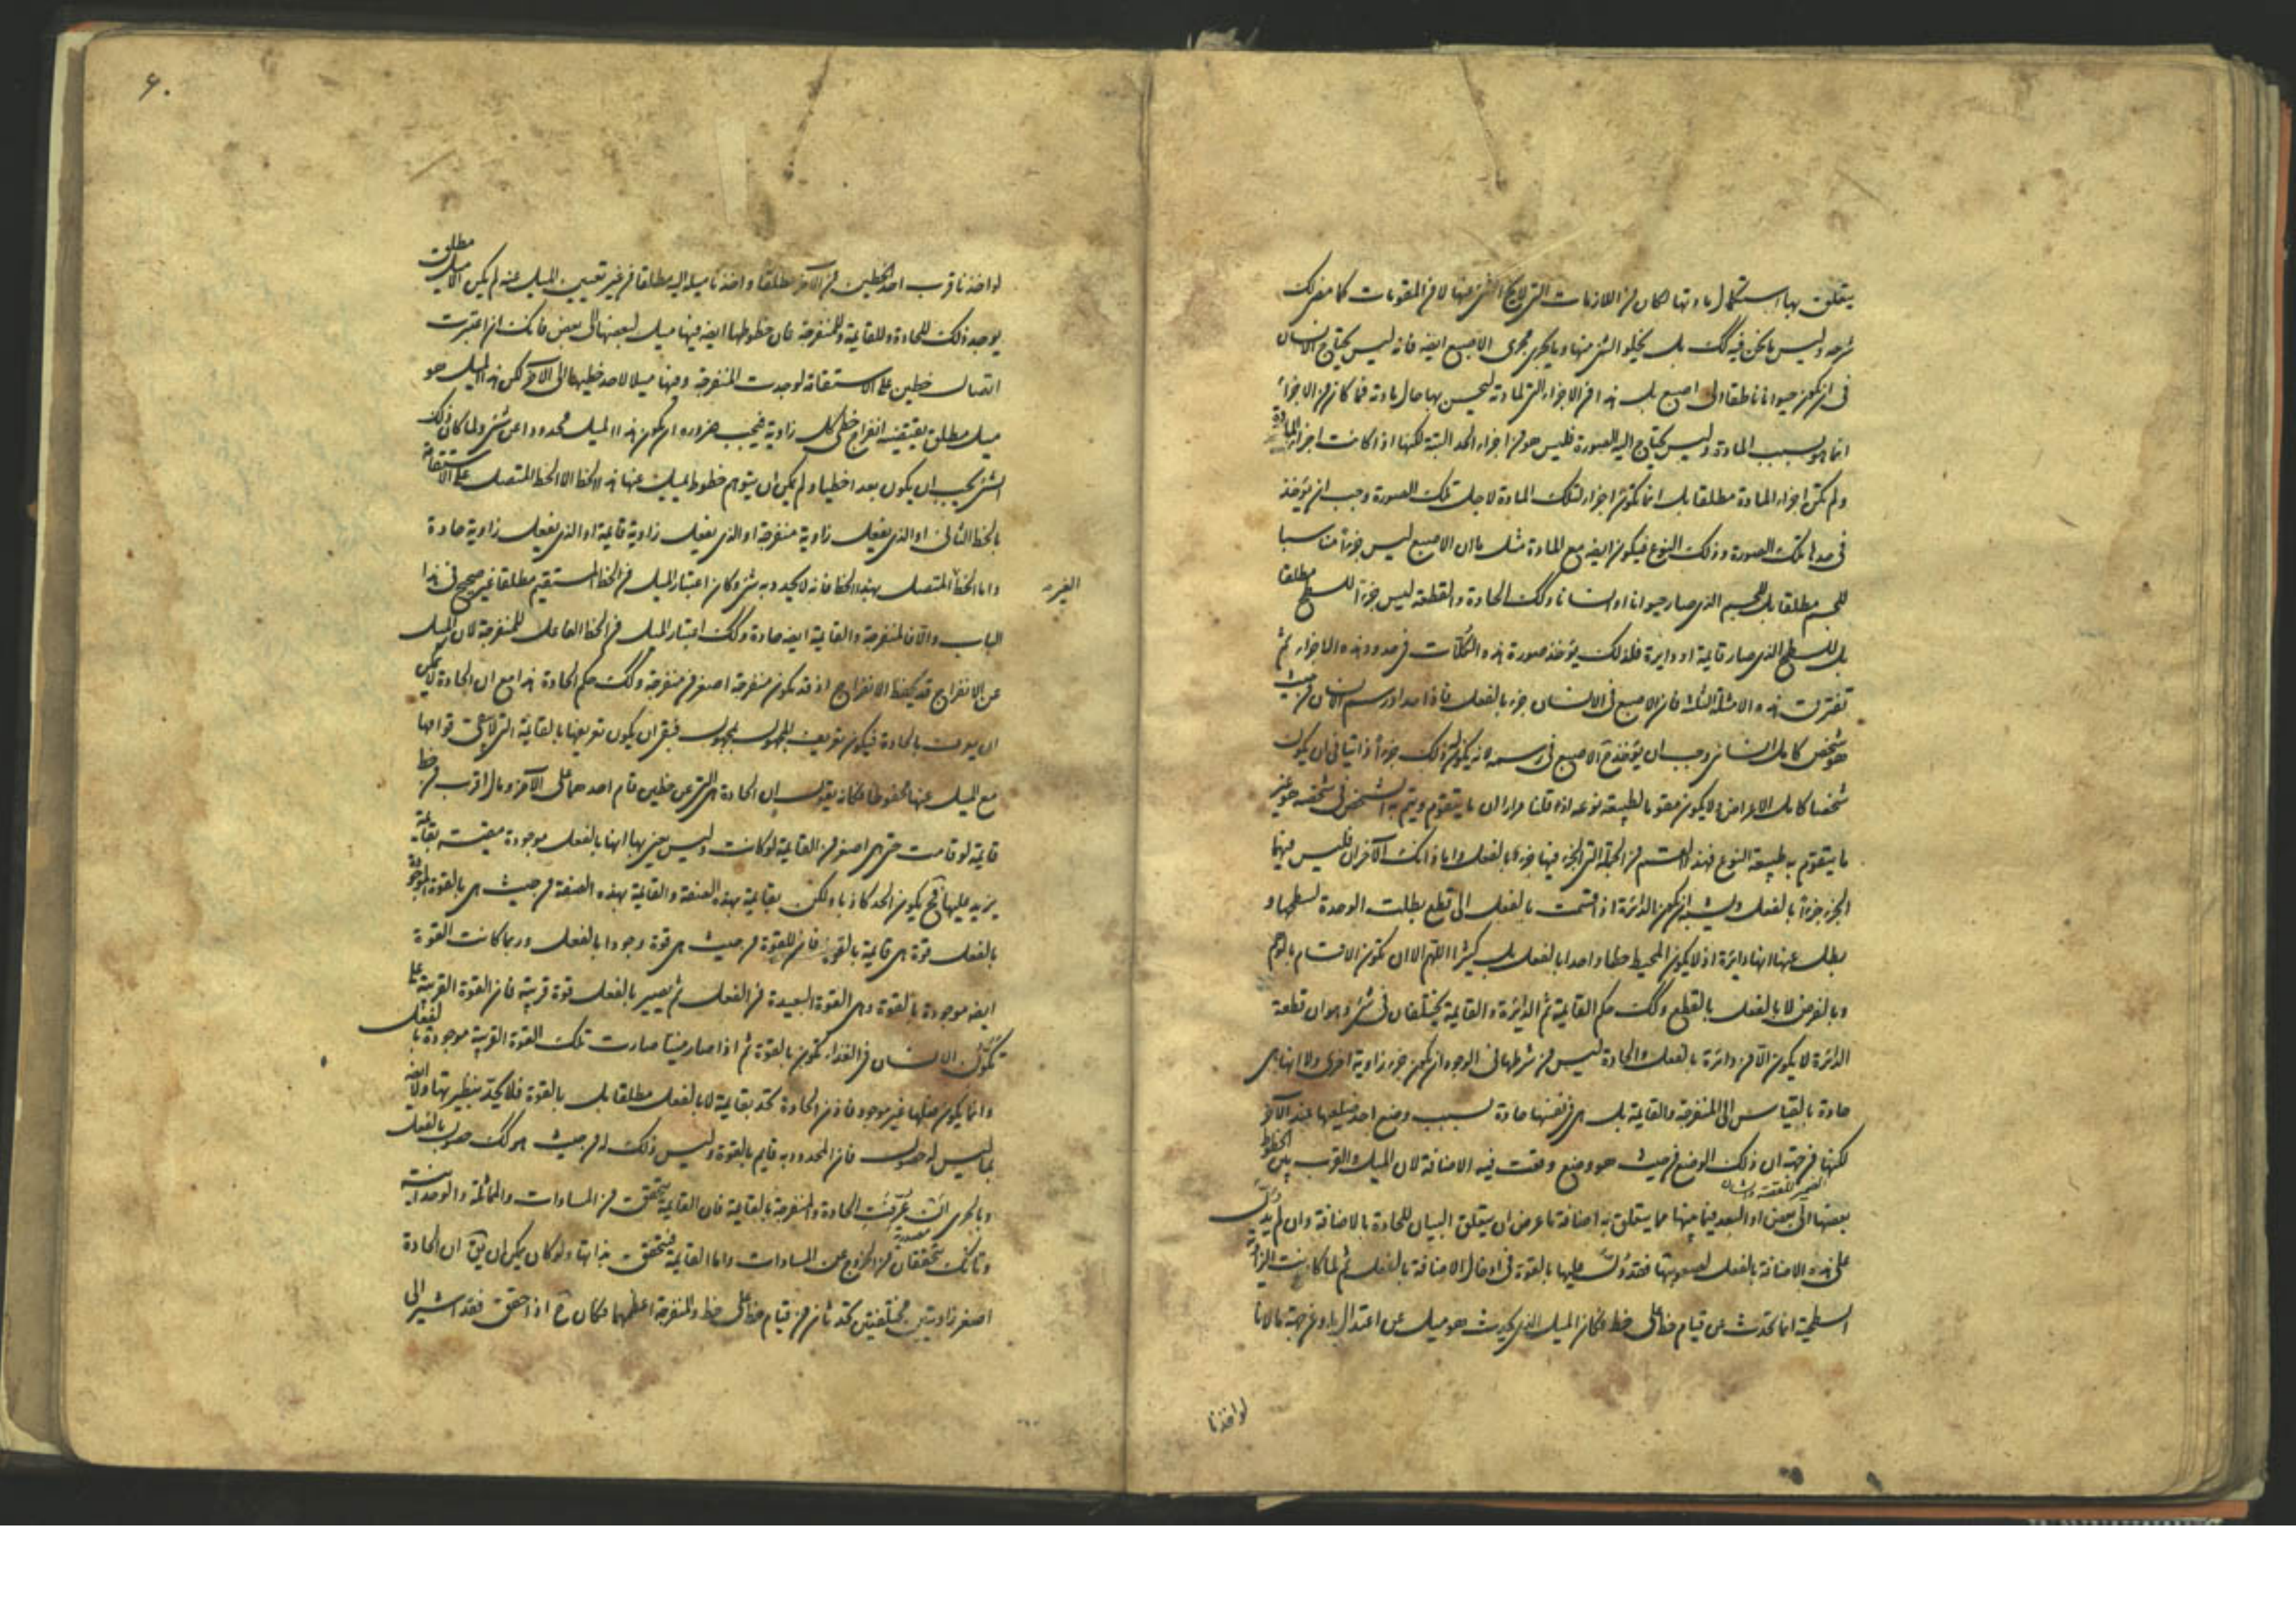 يتعلق بها استكمال مادتها لكان من اللازمات التى لا يخلو الشئ عنها لا من المقومات كما مضى لك
شرحه وليس ما نحن فيه كك بل يخلو الشئ منها وما يجرى مجرى الاصبع ايضه فانه ليس يحتاج الانسان
فى ان يكون حيوانا ناطقا الى اصبع بل هذا من الاجزاء التى لمادته ليحسن بها حال مادته فما كان من الاجزاء
انما هو بسبب المادة وليس يحتاج اليه الصورة فليس هو من اجزاء الحد البتة لكنها اذا كانت اجزاء المادة
ولم تكن اجزاء المادة مطلقا بل انما تكون اجزاء لتلك المادة لاجل تلك الصورة وجب ان يؤخذ
فى حدها تلك الصورة وذلك النوع فيكون ايضه مع المادة مثل ما ان الاصبع ليس جزءا مناسبا
للجسم مطلقا بل للجسم الذى صار حيوانا او انسانا وكك الحادة والقطعة ليس جزءا للسطح مطلقا
بل للسطح الذى صار قايمة او دايرة فلذلك يؤخذ صورة هذه الكلات فى حدود هذه الاجزاء ثم
تفترق هذه الامثلة الثلثة فان الاصبع فى الانسان جزء بالفعل فاذا حد او رسم الانسان من حيث
هو شخص كامل انسانى وجب ان يؤخذ ح الاصبع فى رسمه لانه يكون لذلك جزءا ذاتيا فى ان يكون
شخصا كامل الاعراض ولا يكون مقوما لطبيعة نوعه اذ قلنا مرارا ان ما يتقوم ويتم به الشخص فى شخصه هو غير
ما يتقوم به طبيعة النوع فهذا القسم من الجملة التى الجزء فيها جزء بالفعل واما ذانك الآخران فليس فيهما
الجزء جزءا بالفعل ويشبه ان يكون الدائرة اذا قسمت بالفعل الى قطع بطلت الوحدة لسطحها و
بطل عنها انها دايرة اذ لا يكون المحيط خطا واحدا بالفعل بل كثيرا اللهم الا ان تكون الاقسام بالوهم
وبالفرض لا بالفعل بالقطع وكك حكم القايمة ثم الدائرة والقايمة يختلفان فى شئ وهو ان قطعة
الدائرة لا يكون الا من دائرة بالفعل والحادة ليس من شرطها فى الوجود ان يكون جزء زاوية اخرى ولا انها هى
حادة بالقياس الى المنفرجة والقايمة بل هى فى نفسها حادة بسبب وضع احد ضلعيها عند الآخر
لكنها من جهة ان ذلك الوضع من حيث هو وضع وقعت فيه الاضافة لان الميل والقرب بين الخطوط
بعضها الى بعض او البعد فيما بينها مما يتعلق به اضافة ما عرض ان يتعلق البيان للحادة بالاضافة وان لم يدل
على هذه الاضافة بالفعل لصعوبتها فقد دل عليها بالقوة فى ادخال الاضافة بالفعل ثم لما كانت الزاوية
السطحية انما تحدث عن قيام خط على خط وكان الميل الذى يحدث هو ميل عن اعتدال ما وعن جهة ما لانا
لو اخذنا
لو اخذنا قرب احد الخطين من الآخر مطلقا واخذنا ميله اليه مطلقا من غير تعيين الميل عنه لم يكن الا ميل مطلق
يوجد ذلك للحادة وللقايمة وللمنفرجة فان خطوطها ايضه فيها ميل لبعضها الى بعض فانك ان اعتبرت
اتصال خطين على الاستقامة لوجدت المنفرجة وفيها ميلا لاحد خطيها الى الآخر لكن هذا الميل هو
ميل مطلق يقتضيه انفراج خطى كل زاوية فيجب ضرورة ان يكون هذا الميل محدودا عن شئ ولما كان ذلك
الشئ يجب ان يكون بعدا خطيا ولم يمكن ان يتوهم خطوط يميل عنها هذا الخط الا الخط المتصل على الاستقامة
بالخط الثانى او الذى يفعل زاوية منفرجة او الذى يفعل زاوية قايمة او الذى يفعل زاوية حادة
واما الخط المتصل بهذا الخط فانه لا يحد به شئ وكان اعتبار الميل من الخط المستقيم مطلقا غير صحيح فى هذا
الباب والا فالمنفرجة والقايمة ايضه حادة وكك اعتبار الميل من الخط الفاعل للمنفرجة لان الميل
عن الانفراج قد يحفظ الانفراج اذ قد يكون منفرجة اصغر من منفرجة وكك حكم الحادة هذا مع ان الحادة لا يمكن
ان يعرف بالحادة فيكون تعريف المجهول بمجهول فبقى ان يكون تعريفها بالقايمة التى لا يبقى قوامها
مع الميل عنها محفوظا فكانه يقول ان الحادة هى التى عن خطين قام احدهما على الآخر ومال اقرب من خط
قايمة لو قامت حتى هى اصغر من القايمة لو كانت وليس يعنى بها انها بالفعل موجودة مقيسة بقايمة
يزيد عليها فح يكون الحد كاذبا ولكن بقايمة بهذه الصفة والقايمة بهذه الصفة من حيث هى بالقوة الموجودة
بالفعل قوة هى قايمة بالقوة فان للقوة من حيث هى قوة وجودا بالفعل وربما كانت القوة
ايضه موجودة بالقوة وهى القوة البعيدة من الفعل ثم يصير بالفعل قوة قريبة فان القوة القريبة على
تكون الانسان فى الغذاء تكون بالقوة ثم اذا صار منيا صارت تلك القوة القريبة موجودة بالفعل
وانما يكون فعلها غير موجود فاذن الحادة تحد بقايمة لا بالفعل مطلقا بل بالقوة فلا يحد بنظيرتها ولا ايضه
بما ليس له حصول فان المحدود به قايم بالقوة وليس ذلك له من حيث هو كك حصول بالفعل
وبالحرى ان عرفت الحادة والمنفرجة بالقايمة فان القايمة تتحقق من المساوات والمماثلة والوحدانية
وتانك تتحققان من الخروج عن المساوات واما القايمة فتتحقق بذاتها ولو كان يمكن ان يق ان الحادة
اصغر زاويتين مختلفتين تحدثان من قيام خط على خط والمنفرجة اعظمهما فكان ح اذا حقق فقد اشير الى